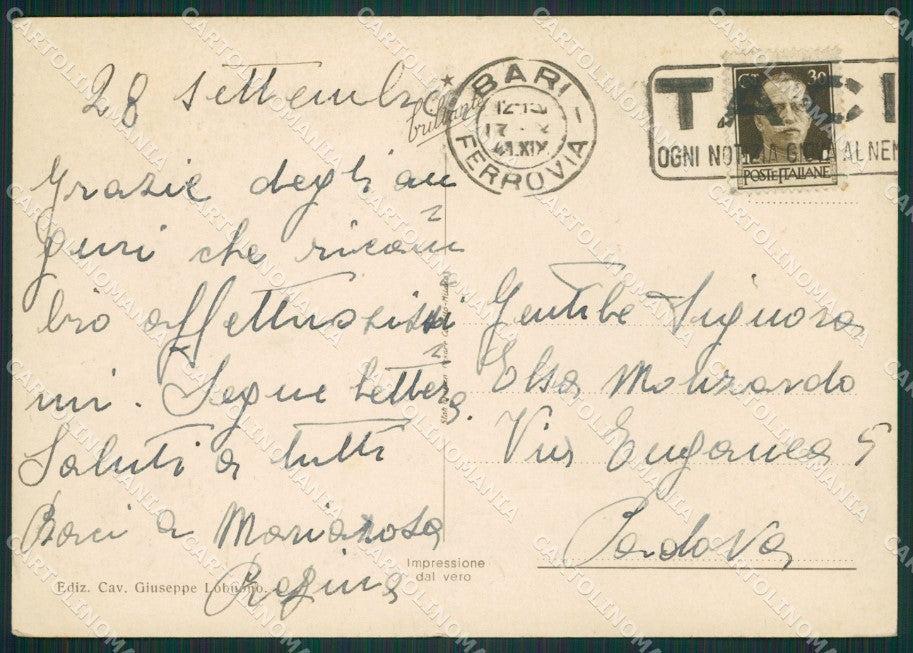 28 settembre
Grazie degli au
guri che ricam
bio affettuosissi
mi. Segue lettera
Saluti a tutti
Baci a Mariarosa
Regina
Ediz. Cav. Giuseppe Lobuono.
Impressione
dal vero
brillante
BARI
FERROVIA
41.XIX
TACI
OGNI NOTIZIA GIOVA AL NEM
CT 30
POSTE ITALIANE
Gentile Signora
Elsa
Via Euganea 5
Padova
CARTOLINOMANIA